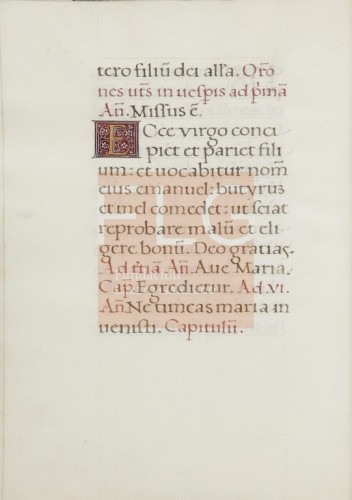 tero filiū dei alľa. Orō
nes utš in uespis ad pmā
Añ. Missus ē.
ECce virgo conci
piet et pariet fili
um: et uocabitur nom̄
eius emanuel: butyrus
et mel comedet: ut sciat
reprobare malū et eli
gere bonū. Deo gratias.
Ad tꝛiā Añ. Aue Maria.
Cap. Egredietur. Ad. vi.
Añ. Ne timeas maria in
uenisti. Capitulū.
FLG